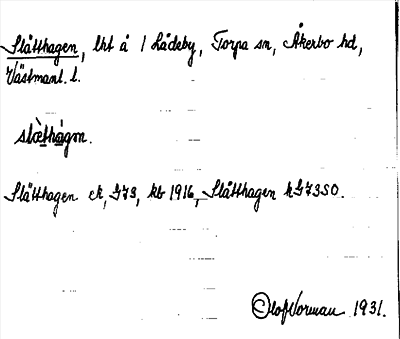 Slätthagen, lht å 1 Lådeby, Torpa sn, Åkerbo hd,
Västmanl. l.
slæ̀thágɒn.
Slätthagen ek, G73, kb 1916, Slätthagen kG73SO.
Olof Norman 1931.